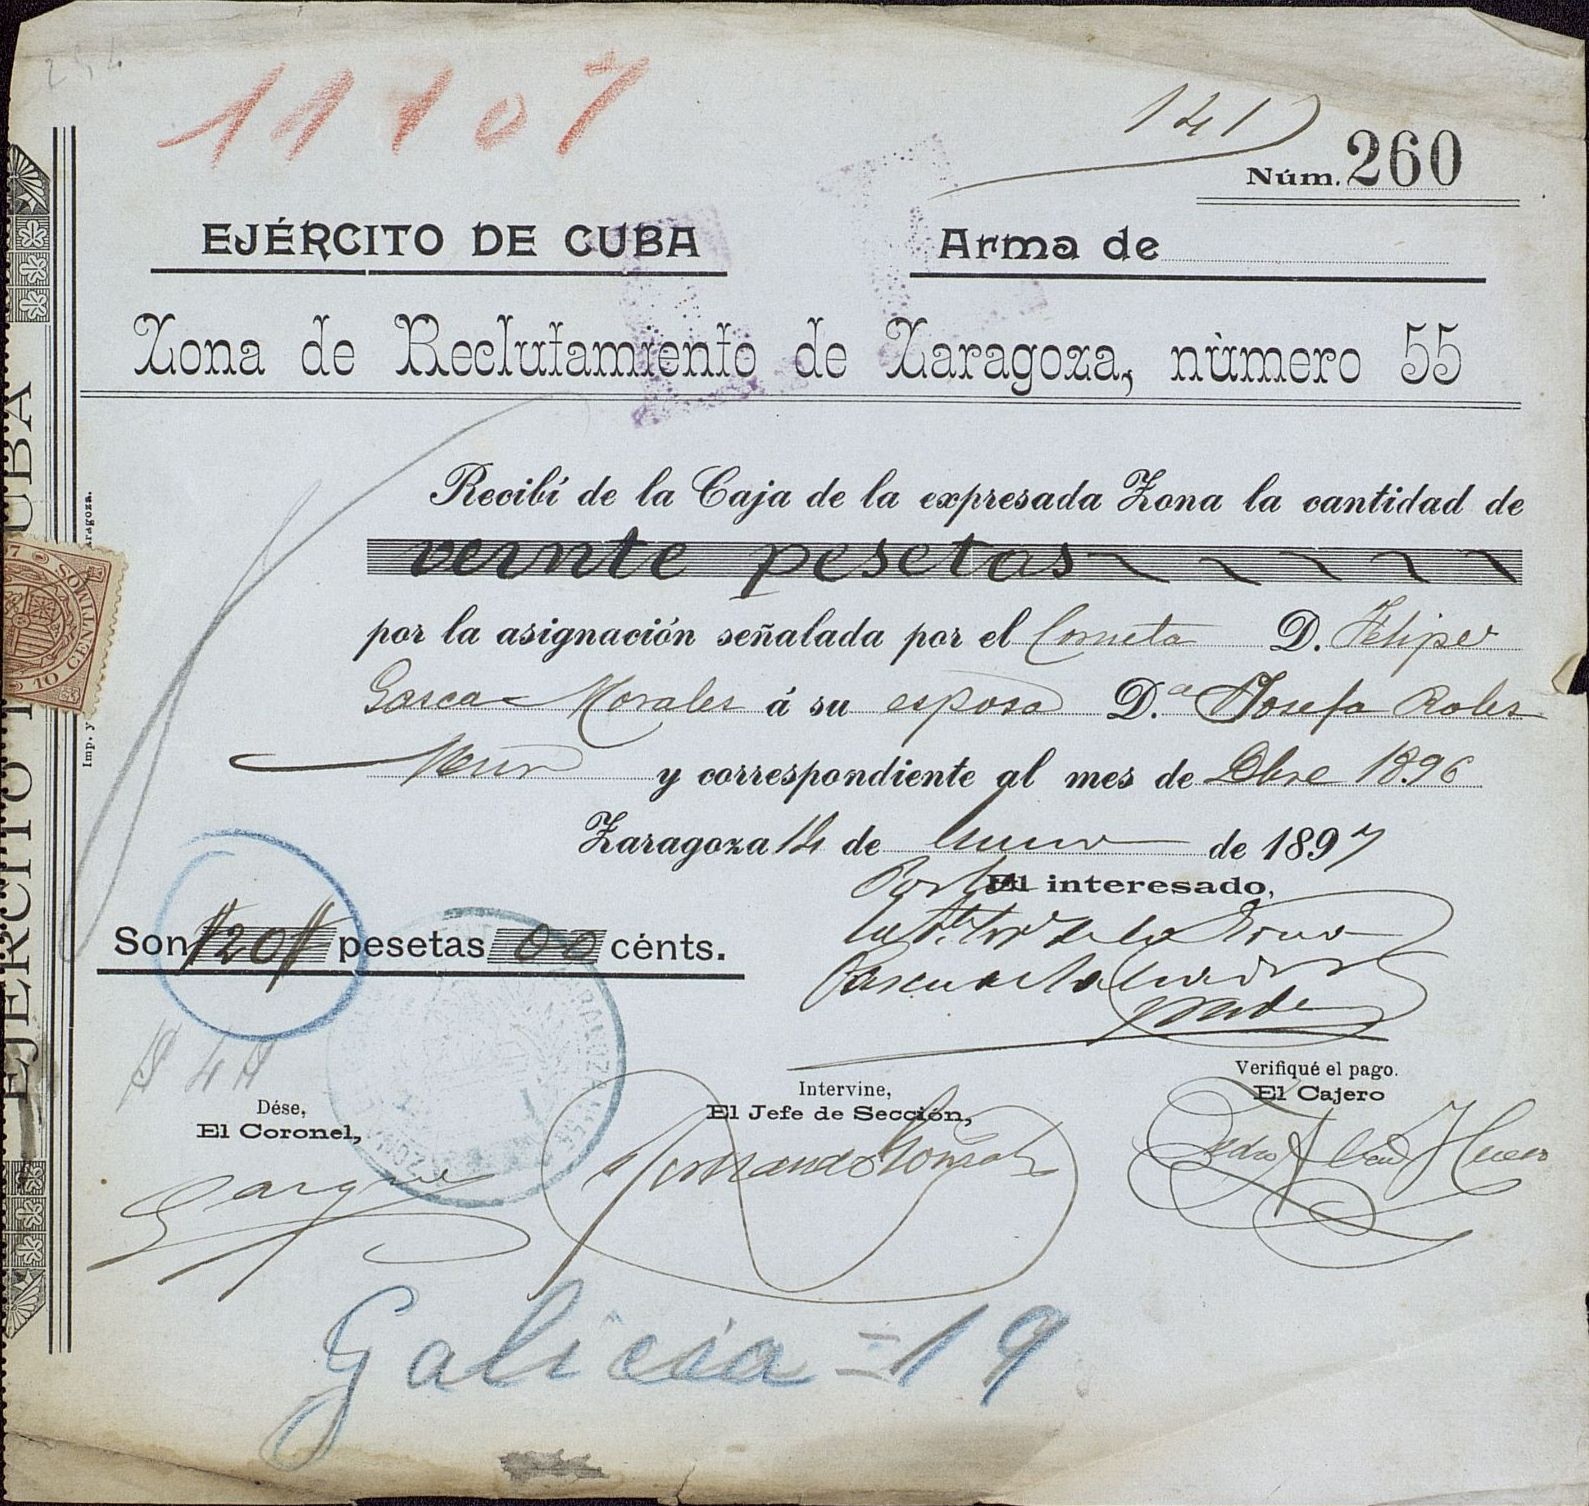 11107
141
Núm. 260
EJÉRCITO DE CUBA
Arma de
Zona de Reclutamiento de Zaragoza, número 55
Recibí de la Caja de la expresada Zona la cantidad de
veinte pesetas
por la asignación señalada por el Corneta D. Felipe
Gasca Morales á su esposa D.ª Josefa Robes
y correspondiente al mes de Dbre 1896
Zaragoza 14 de Enero de 1897
El interesado,
Son 20 pesetas 00 cénts.
$ 4
Dése,
El Coronel,
Intervine,
El Jefe de Sección,
Verifiqué el pago.
El Cajero
Galicia = 19
EJÉRCITO
CUBA
10 CENTIMOS
Imp. y
aragoza.